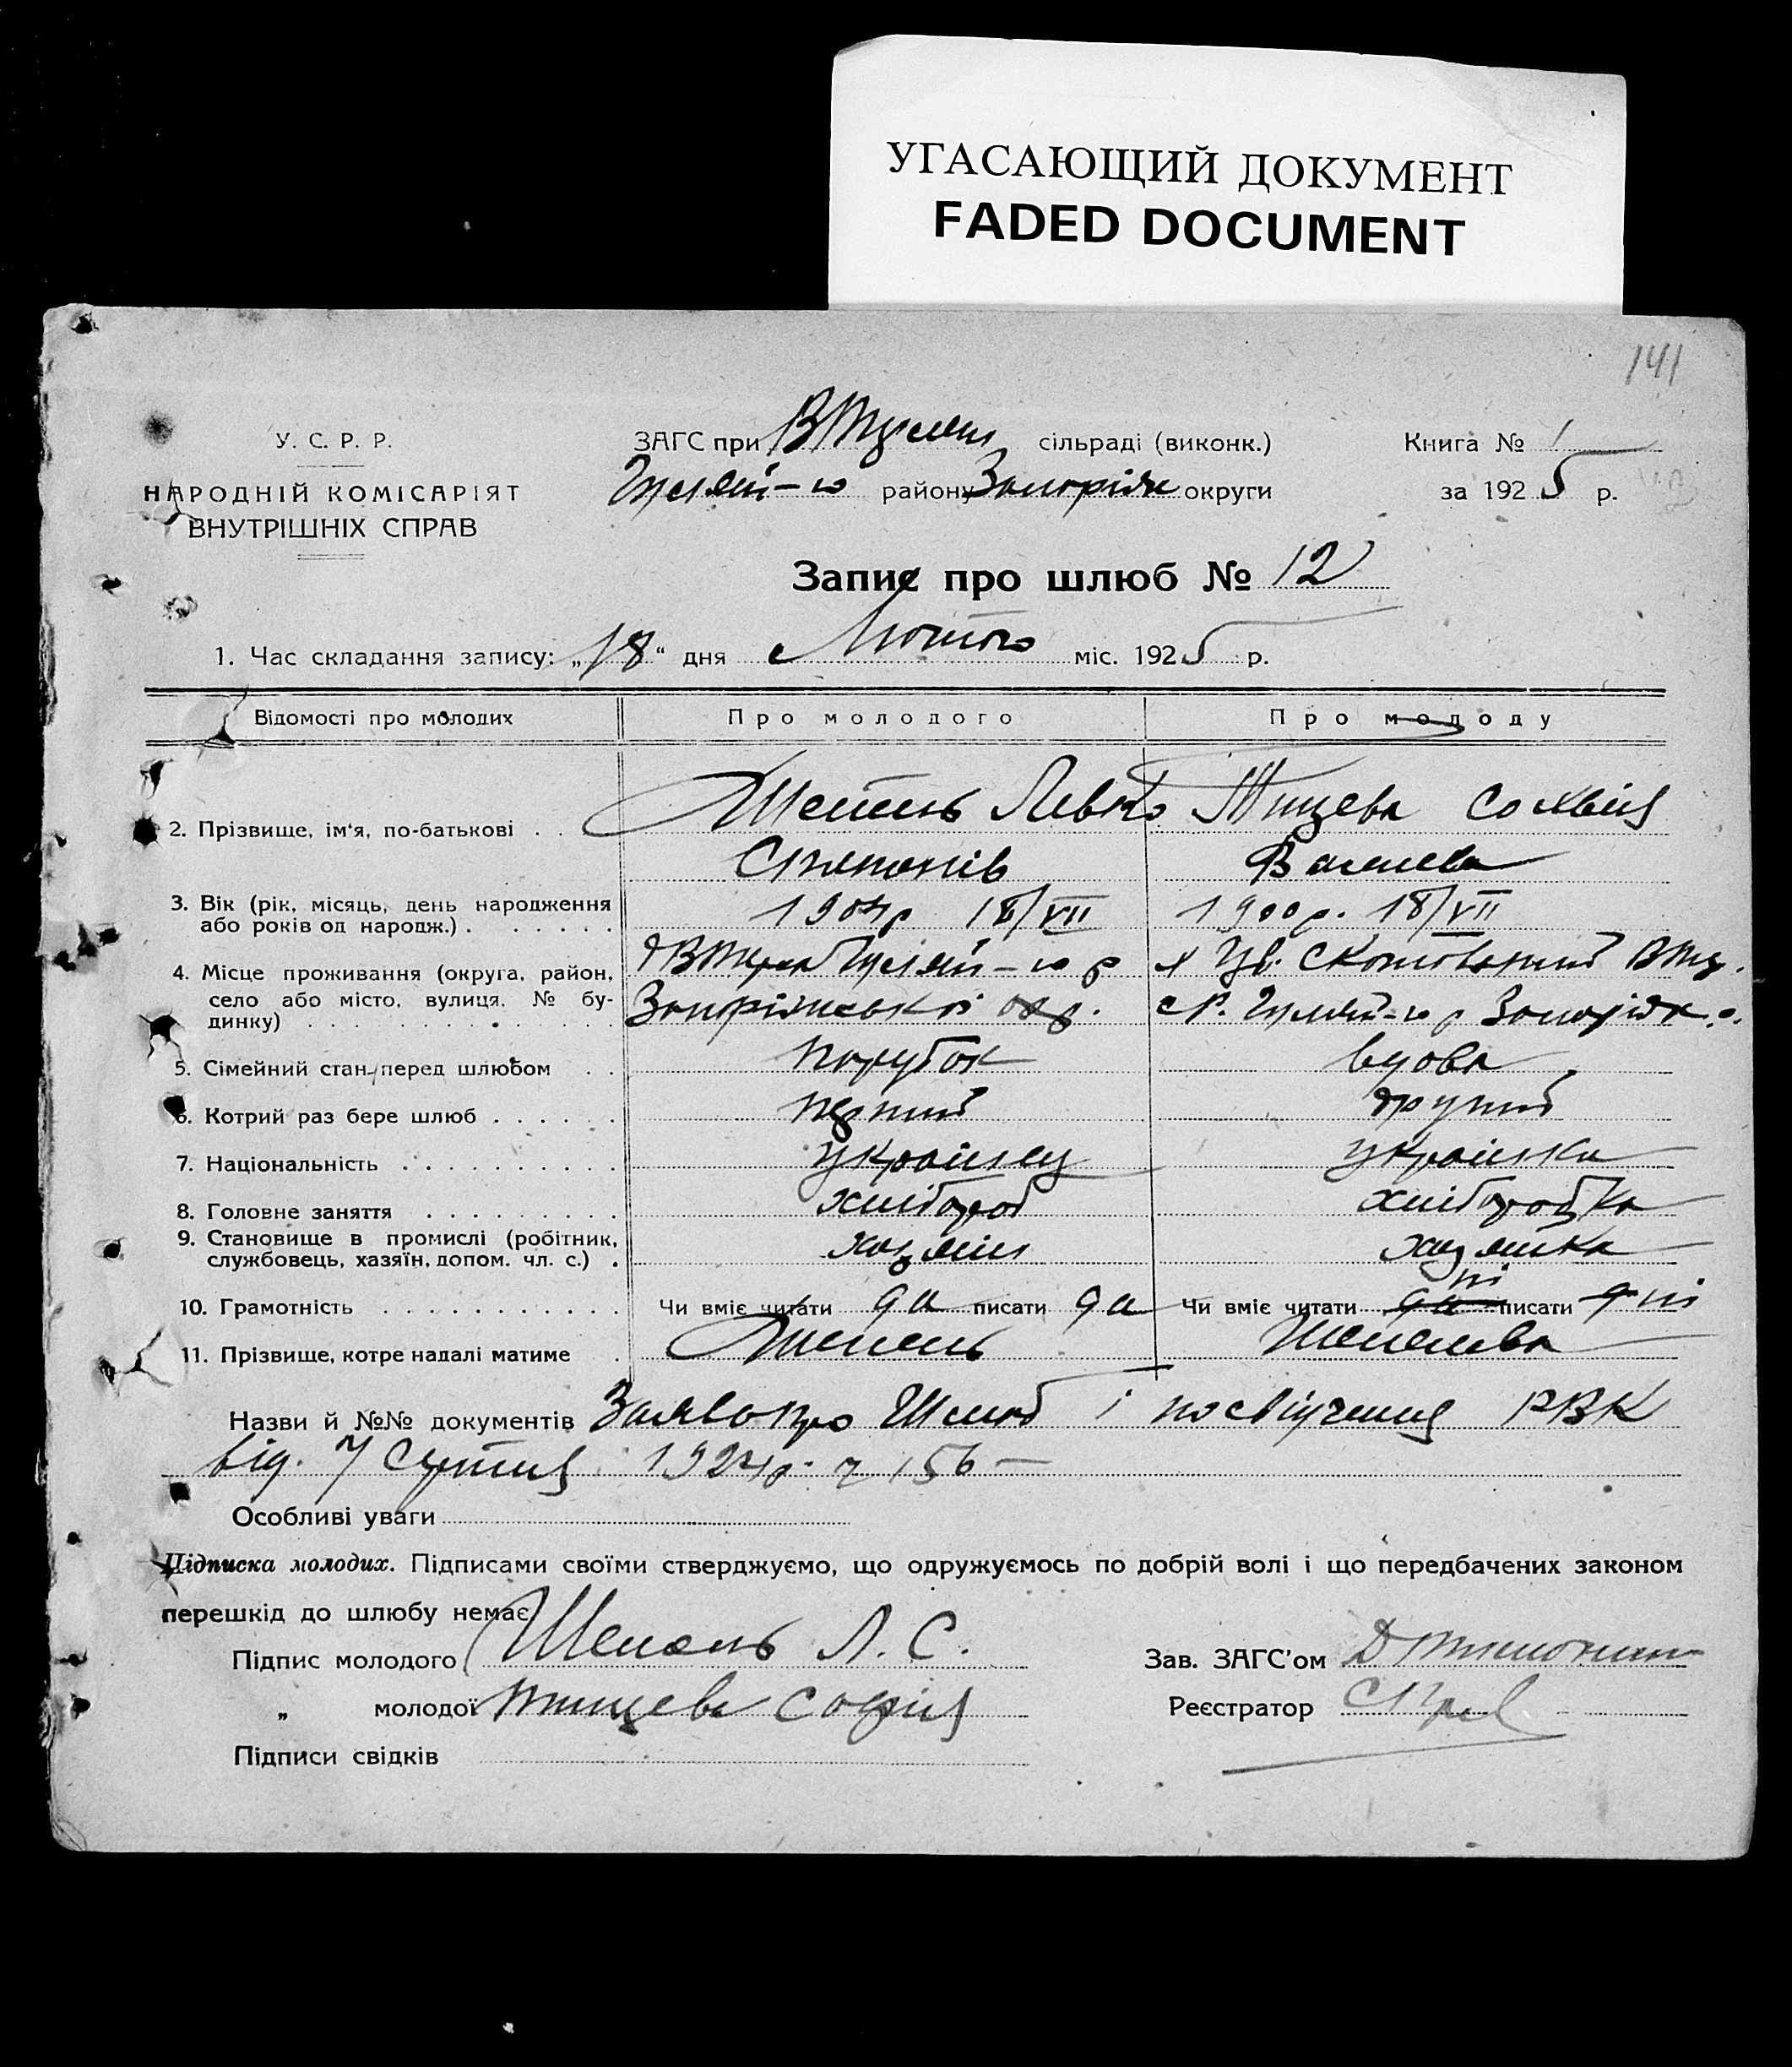 УГАСАЮЩИЙ ДОКУМЕНТ
FADED DOCUMENT
141
У. С. Р. Р.
НАРОДНІЙ КОМІСАРІЯТ
ВНУТРІШНІХ СПРАВ
ЗАГС при сільраді (виконк.)
району округи
Книга № 1
за 1925 р.
Запис про шлюб № 12
1. Час складання запису: „18“ дня Лютого міс. 1925 р.
Відомості про молодих Про молодого Про молоду
2. Прізвище, ім'я, по-батькові . . Шепель Левко Птицева Сохвія
Степанів Василева
3. Вік (рік, місяць, день народження або років од народж.) . . . . . . 1904р 18/VII 1900р. 18/VII
4. Місце проживання (округа, район, село або місто, вулиця, № будинку) Гуляй-ю р
Запоріжської окр.
5. Сімейний стан перед шлюбом . . парубок вдова
6. Котрий раз бере шлюб . . . . . . перший другий
7. Національність . . . . . . . . . . українец українка
8. Головне заняття . . . . . . . . . хлібороб хліборобка
9. Становище в промислі (робітник, службовець, хазяїн, допом. чл. с.) . хазяін хазяйка
10. Грамотність . . . . . . . . . . . Чи вміє читати да писати да Чи вміє читати да ні писати ні
11. Прізвище, котре надалі матиме . Шепель Шепелева
Назви й №№ документів Заява про Шлюб і посвідчення РВК
від. 7 Серпня 1924р. ч 156 —
Особливі уваги
Підписка молодих. Підписами своїми стверджуємо, що одружуємось по добрій волі і що передбачених законом
перешкід до шлюбу немає.
Підпис молодого Шепель Л. С.
„ молодої Птицева Софія
Підписи свідків
Зав. ЗАГС'ом
Реєстратор